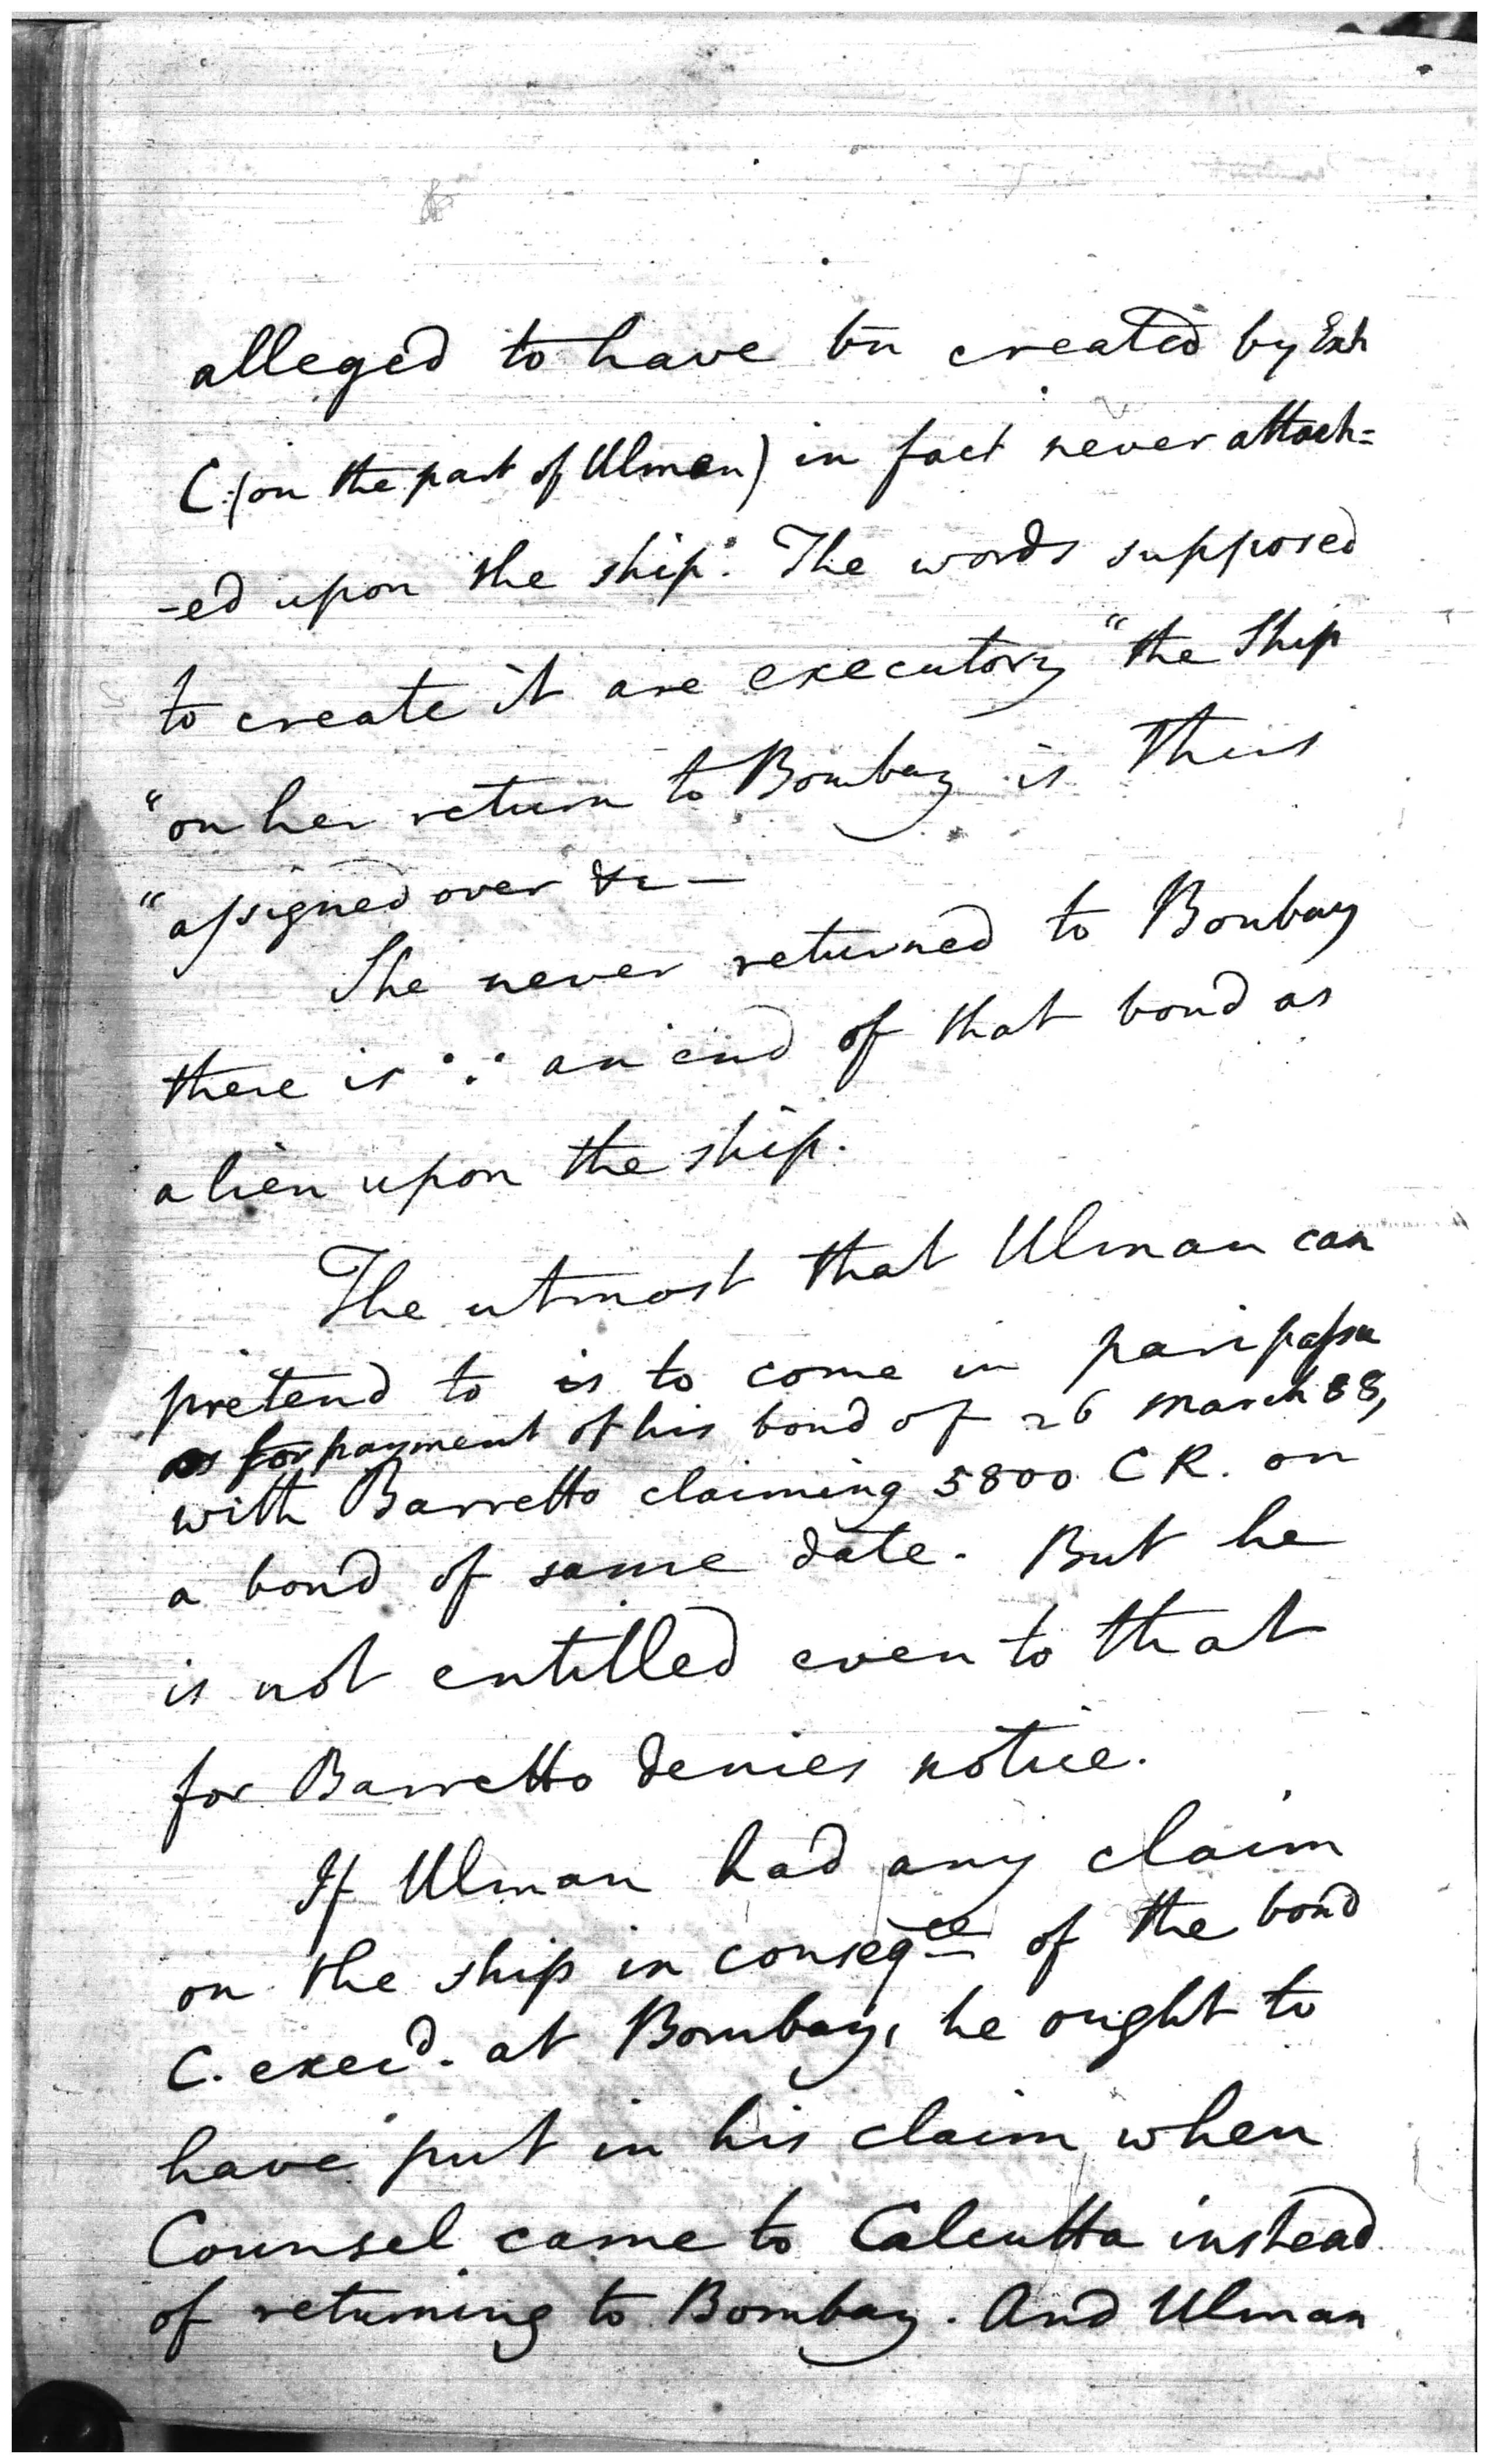 alleged to have bn created by Exh
C. (on the part of Ulman) in fact never attach=
-ed upon the ship. The words supposed
to create it are executory "the Ship
"on her return to Bombay is thus
"assigned over &c —
She never returned to Bombay
there is ∴ an end of that bond as
a lien upon the ship.
The utmost that Ulman can
pretend to is to come in pari passu
as for payment of his bond of 26 March 88,
with Barretto claiming 5800 C R. on
a bond of same date. But he
is not entitled even to that
for Barretto denies notice.
If Ulman had any claim
on the ship in conseqce of the bond
C. execd. at Bombay, he ought to
have put in his claim when
Counsel came to Calcutta instead
of returning to Bombay. And Ulman